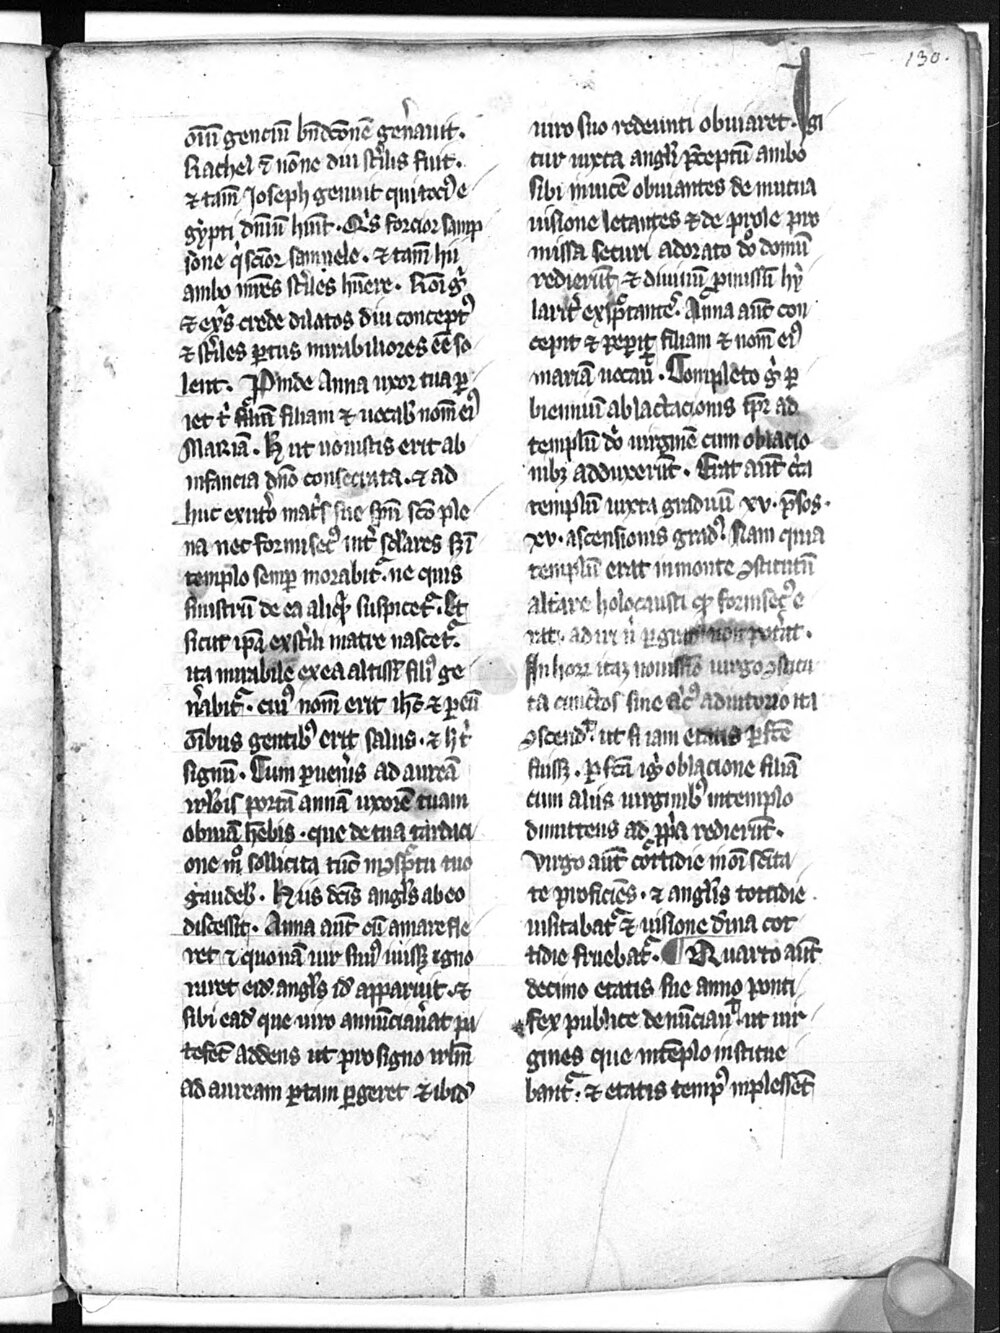 130.
oīu genciū bn̄dcōnē gen̄auit.
Rachel ⁊ nōne diu st̄ilis fuit.
⁊ tam̄ Joseph genuit qui toci⁹ e
gypti dn̄iū hūit. Q̄s forcior samp
sone q̄s sc̄ior samuele. ⁊ tam̄ hii
ambo mr̄es st̄iles hūere.
⁊ crede dilatos diu concept⁹
⁊ st̄iles ꝑtus mirabiliores eē so
lent. Proinde Anna uxor tua ꝑ
iet t̄ filiam ⁊ uocab̄ nom̄ ei⁹
Mariā. H ut uouistis erit ab
infancia dn̄o consecrata. ⁊ ad
huc ex ut̄o mat̄s sue sp̄u sc̄o ple
na nec forinsec⁹ int̄ sclares
templo semꝑ morabit᷑. ne quis
sinistrū de ea aliqͥd suspicet᷑. Et
sicut ip̄a ex st̄ili matre nascet᷑.
ita mirabile ex ea altissī fili⁹ ge
n̄abit᷑. cui⁹ nom̄ erit ih̄c ⁊ ꝑ eū
oībus gentib⁹ erit salus. ⁊ h t̄
signū. Cum ꝑuen̄is ad aureā
irl̄ois portā annā uxorē tuam
obuiā hēbis. que de tua tardaci
one mͦ sollicita tūc
gaudeb̄. Hiis dc̄is angl̄s ab eo
discessit. Anna aut̄ cū amare fle
ret ⁊ quonā uir suus iuiss⁊ igno
raret eid̄ angl̄s id̄ apparuit. ⁊
sibi ead̄ que uiro annūciau̅at pa
tefec̄ addens ut pro signo irl̄m
ad auream ꝑtam ꝑgeret ⁊ ibid̄
uiro suo redeunti obuiaret. Igi
tur iuxta angl̄i p̄ceptū ambo
sibi inuicē obuiantes de mutua
uisione letantes ⁊ de prole pro
missa securi adorato dn̄o domū
redierūt ⁊ diuinū ꝓmissū hy
larit̄ exspectantes. Anna aut̄ con
cepit ⁊ peperit filiam ⁊ nom̄ ei⁹
mariā uocauit. Completo g̊ ꝑ
biennuū ablactacionis ad
templū dn̄i uirginē cum oblacio
nibꝫ adduxerūt. Erat aut̄ c̄ca
templū iuxta graduū xv. psōs.
xv. ascensionis grad⁹. Nam quia
templū erat in monte ꝯstitutū
altare holocausti qͦ forinsec⁹ e
rat. adiri n̄ ꝑ gradus non pot̄at.
In hor itaqꝫ nouissīo uirgo ꝯstitu
ta cunctos sine alic⁹ adiutorio ita
ꝯscendit ut si iam etatis ꝑfc̄e
fuiss⁊. Ꝑfc̄a ig̊ oblacione filiā
cum aliis uirginib⁹ in templo
dimittens ad ꝓpͥa redierūt.
Virgo aut̄ cottidie in oī sc̄ita
te proficiens. ⁊ anglis̄ cottidie
uisitabat᷑ ⁊ uisione diͥna cot
tidie fruebat᷑. ¶ Quarto aut̄
decimo etatis sue anno ponti
fex publice denūciauit ut uir
gines que in tēplo institue
bant᷑. ⁊ etatis temp⁹ inplessent̄